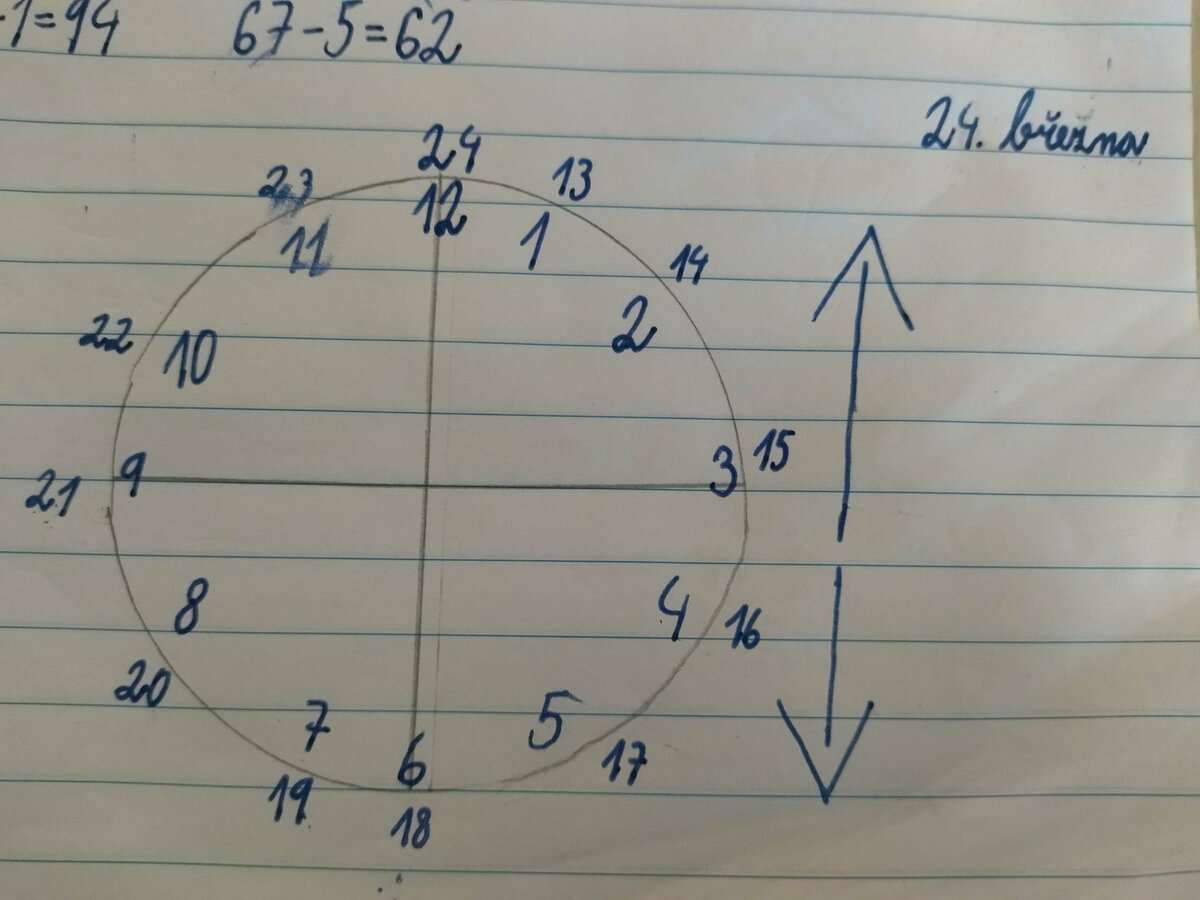 -1=94 67-5=62
24. března
24
23 13
12
11 1
14
22 2
10
15
9 3
21
8 4 16
20
7 5
6 17
19
18